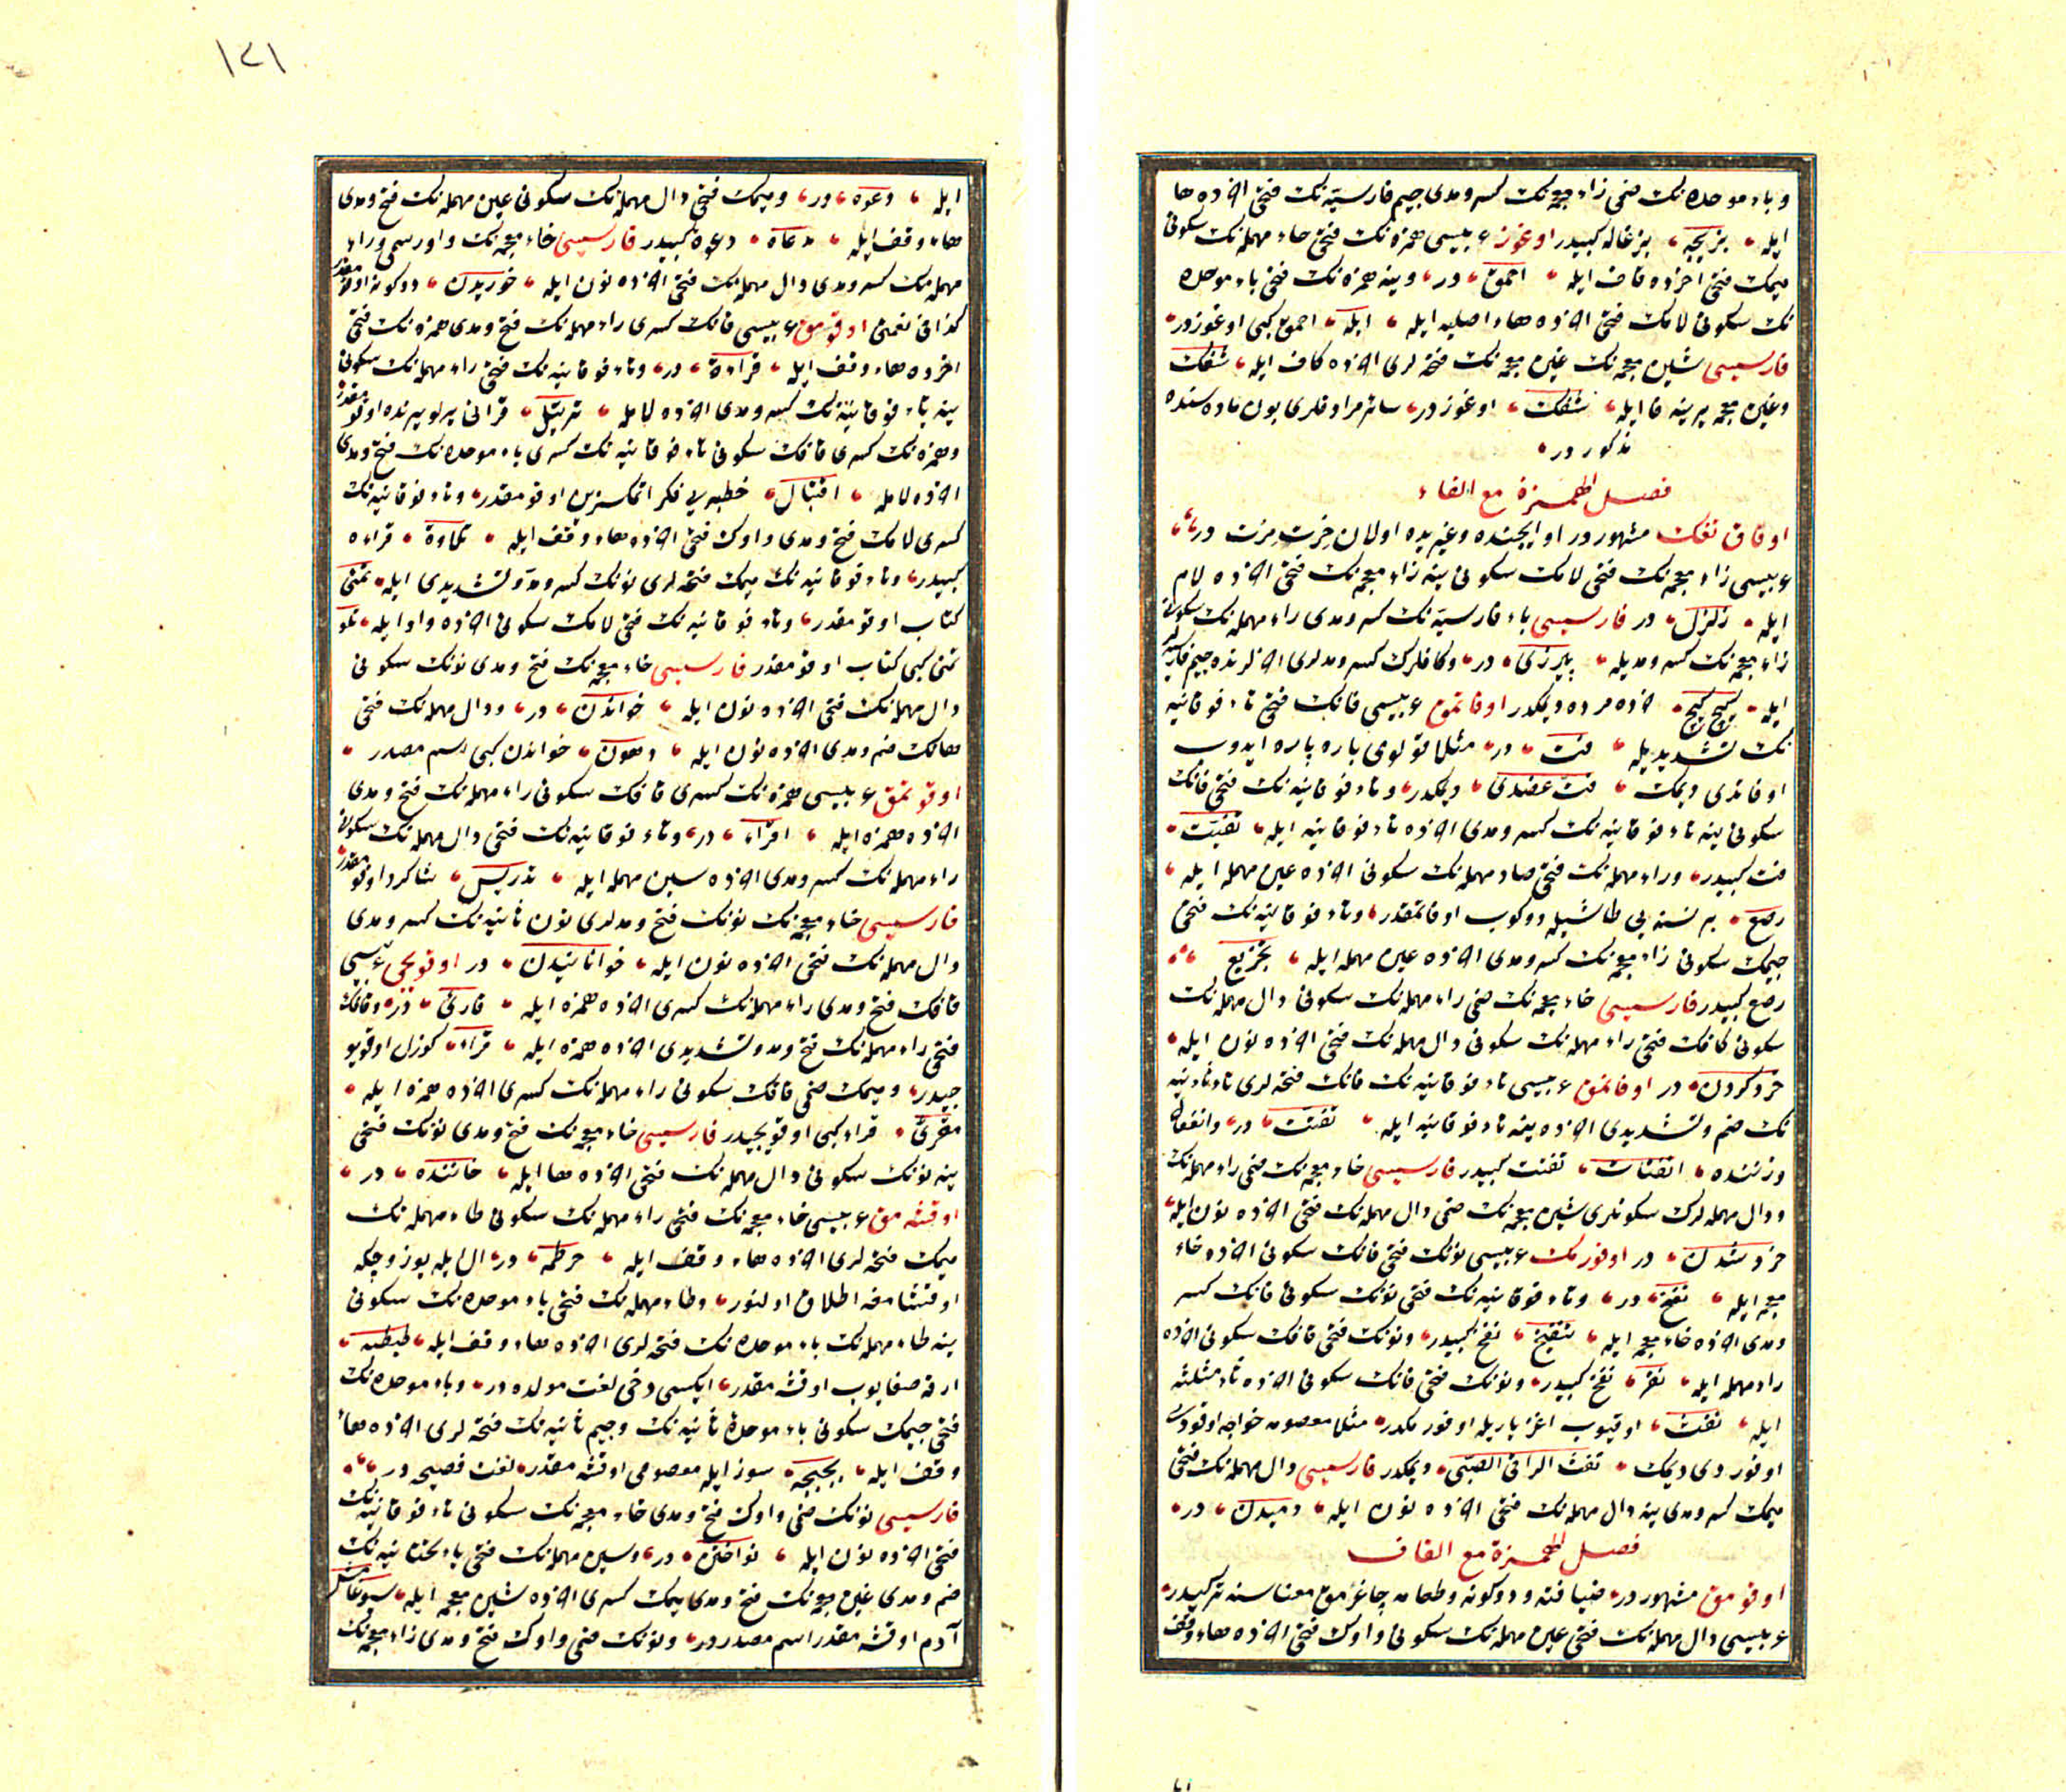 و باء موحده نک ضمی زاء معجمه نک کسر و مدی جیم فارسیّه نک فتحی آخرنده ها
ایله بزیچه بزغاله کبیدر اوغوز عربیسی همزه نک فتحی حاء مهمله نک سکونی
میمک فتحی آخرنده قاف ایله احمق در وینه همزه نک فتحی باء موحده
نک سکونی لامک فتحی آخرنده هاء اصلیه ایله ابله احمق کبی اوغوزدر
فارسیسی شین معجمه نک غین معجمه نک فتحه لری آخرنده کاف ایله شغک
وغین معجمه یرینه فا ایله شفک اوغوز در سائر مرادفلری بون ماده سنده
مذکور در
فصل الهمزة مع الفاء
اوفاق تفک مشهور در او ایچنده وغیریده اولان خرت مرت در
عربیسی زاء معجمه نک فتحی لامک سکونی ینه زاء معجمه نک فتحی آخرنده لام
ایله زلزل در فارسیسی باء فارسیّه نک کسر و مدی راء مهمله نک سکونی
زاء معجمه نک کسر و مدیله در وکافلرک کسر و مدلری آخرلرنده جیم فارسیه
ایله کیچ کیچ خرده مرده دیمکدر اوفاتمق عربیسی فانک فتحی تاء فوقانیه
نک تشدیدیله فت در مثلا قولومی پاره پاره ایدوب
اوفاتدی دیمک فتّ عضدی دیمکدر وتاء فوقانیه نک فتحی فانک
سکونی ینه تاء فوقانیه نک کسر و مدی آخرنده تاء فوقانیه ایله تفتیت
فت کبیدر وراء مهمله نک فتحی صاد مهمله نک سکونی آخرنده عین مهمله ایله
رصع بر نسنه یی طاشیله دوکوب اوفاتمقدر وتاء فوقانیه نک فتحی
جیمک سکونی زاء معجمه نک کسر و مدی آخرنده عین مهمله ایله تجزیع
رصع کبیدر فارسیسی خاء معجمه نک ضمی راء مهمله نک سکونی دال مهمله نک
سکونی کافک فتحی راء مهمله نک سکونی دال مهمله نک فتحی آخرنده نون ایله
خردکردن در اوفانمق عربیسی تاء فوقانیه نک فانک فتحه لری تاء ثانیه
نک ضم وتشدیدی آخرنده ینه تاء فوقانیه ایله تفتت در وانفعال
وزننده انفتات تفتت کبیدر فارسیسی خاء معجمه نک ضمی راء مهمله نک
ودال مهمله لرک سکونلری شین معجمه نک ضمی دال مهمله نک فتحی آخرنده نون ایله
خرد شدن در اوفورمک عربیسی نونک فتحی فانک سکونی آخرنده خاء
معجمه ایله نفخ در وتاء فوقانیه نک فتحی نونک سکونی فانک کسر
ومدی آخرنده خاء معجمه ایله تنفیخ نفخ کبیدر ونونک فتحی فانک سکونی آخرنده
راء مهمله ایله نفر نفخ کبیدر ونونک فتحی فانک سکونی آخرنده ثاء مثلثه
ایله نفث اوقیوب اغز یاریله اوفورمکدر مثلا معصومه خواجه اوقودی
اوفوردی دیمک نفث الراقی الصبّی دیمکدر فارسیسی دال مهمله نک فتحی
میمک کسر و مدی ینه دال مهمله نک فتحی آخرنده نون ایله دمیدن در
فصل الهمزة مع القاف
اوقومق مشهور در ضیافته ودوکونه وطعامه چاغرمق معناسنه ترکیدر
عربیسی دال مهمله نک فتحی عین مهمله نک سکونی واوک فتحی آخرنده هاء وقف
١٢١
ایله دعوه در ومیمک فتحی دال مهمله نک سکونی عین مهمله نک فتح ومدی
هاء وقف ایله مدعاه دعوة کبیدر فارسیسی خاء معجمه نک واو رسمی وراء
مهمله نک کسر و مدی دال مهمله نک فتحی آخرنده نون ایله خوریدن دوکونه اوقومقدر
کذا فی نعمتی اوقومق عربیسی قافک کسری راء مهمله نک فتح ومدی همزه نک فتحی
آخرنده هاء وقف ایله قراءة در وتاء فوقانیه نک فتحی راء مهمله نک سکونی
ینه تاء فوقانیه نک کسر و مدی آخرنده لامله ترتیل قرآنی یرلو یرنده اوقومقدر
وهمزه نک کسری قافک سکونی تاء فوقانیه نک کسری باء موحده نک فتح ومدی
آخرنده لامله اقتبال خطبه یی فکر اتمکسزین اوقومقدر وتاء فوقانیه نک
کسری لامک فتح ومدی واوک فتحی آخرنده هاء وقف ایله تلاوة قراءه
کبیدر وتاء فوقانیه نک میمک فتحه لری نونک کسر ومد وتشدیدی ایله تمنّی
کتاب اوقومقدر وتاء فوقانیه نک فتحی لامک سکونی آخرنده واو ایله تلو
تمنی کبی کتاب اوقومقدر فارسیسی خاء معجمه نک فتح ومدی نونک سکونی
دال مهمله نک فتحی آخرنده نون ایله خواندن در ودال مهمله نک فتحی
هانک ضم ومدی آخرنده نون ایله دهون خواندن کبی اسم مصدر
اوقوتمق عربیسی همزه نک کسری قافک سکونی راء مهمله نک فتح ومدی
آخرنده همزه ایله اقراء در وتاء فوقانیه نک فتحی دال مهمله نک سکونی
راء مهمله نک کسر و مدی آخرنده سین مهمله ایله تدریس شاکرد اوقوتمقدر
فارسیسی خاء معجمه نک نونک فتح ومدلری نون ثانیه نک کسر و مدی
دال مهمله نک فتحی آخرنده نون ایله خوانانیدن در اوقویجی عربیسی
قافک فتح ومدی راء مهمله نک کسری آخرنده همزه ایله قاریء در وقافک
فتحی راء مهمله نک فتح ومد وتشدیدی آخرنده همزه ایله قراء کوزل اوقویو
جیدر ومیمک ضمی قافک سکونی راء مهمله نک کسری آخرنده همزه ایله
مقریء قراء کبی اوقویجیدر فارسیسی خاء معجمه نک فتح ومدی نونک فتحی
ینه نونک سکونی دال مهمله نک فتحی آخرنده ها ایله خاننده در
اوقشه مق عربیسی خاء معجمه نک فتحی راء مهمله نک سکونی طاء مهمله نک
میمک فتحه لری آخرنده هاء وقف ایله خرطمه در ال ایله یوز وچکه
اوقشامغه اطلاق اولنور وطاء مهمله نک فتحی باء موحده نک سکونی
ینه طاء مهمله نک باء موحده نک فتحه لری آخرنده هاء وقف ایله طبطبه
ارقه صغایوب اوقشه مقدر ایکیسی دخی لغت مولده در وباء موحده نک
فتحی جیمک سکونی باء موحدۀ ثانیه نک وجیم ثانیه نک فتحه لری آخرنده هاء
وقف ایله بجبجه سوز ایله معصومی اوقشه مقدر لغت فصیحه در
فارسیسی نونک ضمی واوک فتح ومدی خاء معجمه نک سکونی تاء فوقانیه نک
فتحی آخرنده نون ایله نواختن در وسین مهمله نک فتحی یاء تحتانیه نک
ضم ومدی غین معجمه نک فتح ومدی میمک کسری آخرنده شین معجمه ایله
آدم اوقشه مقدر اسم مصدردر ونونک ضمی واوک فتح ومدی زاء معجمه نک